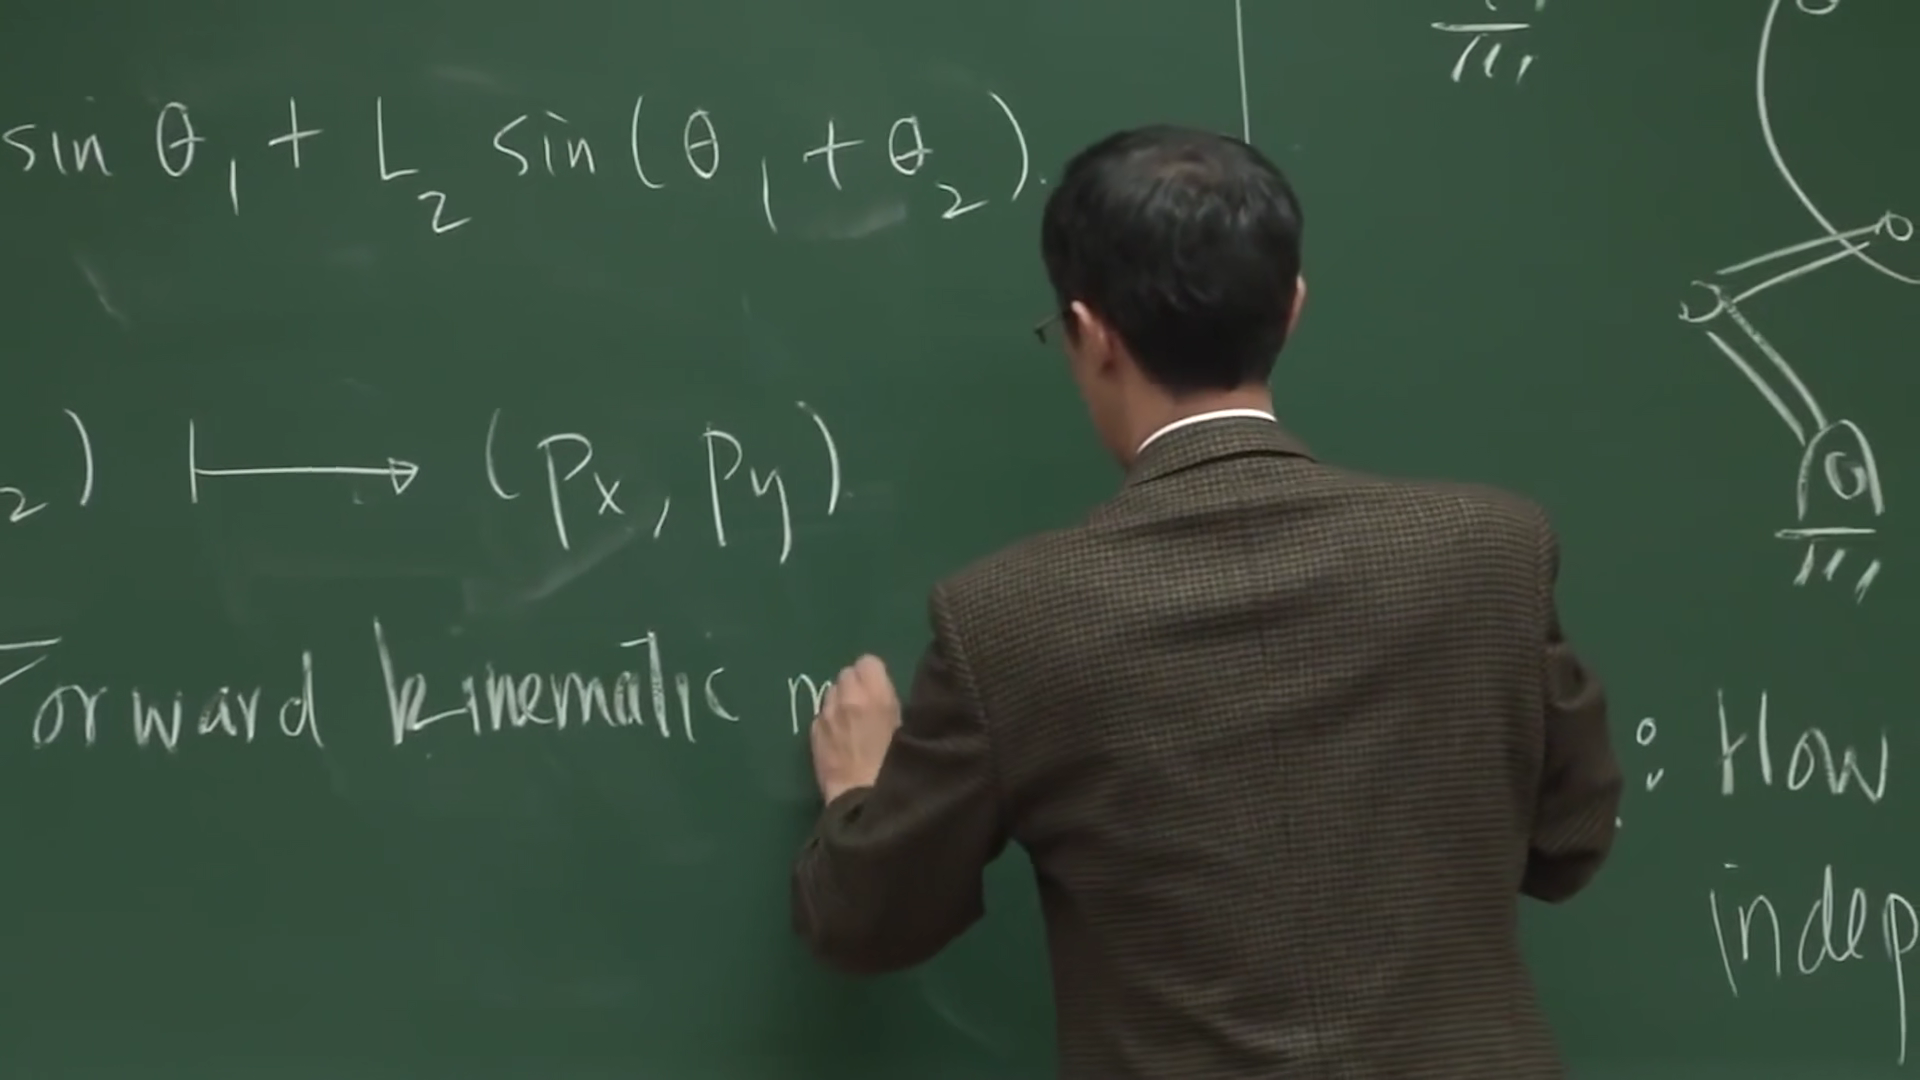 sin θ₁ + L₂ sin(θ₁ + θ₂).
₂) ↦ (Px, Py)
Forward kinematic
: How
indep